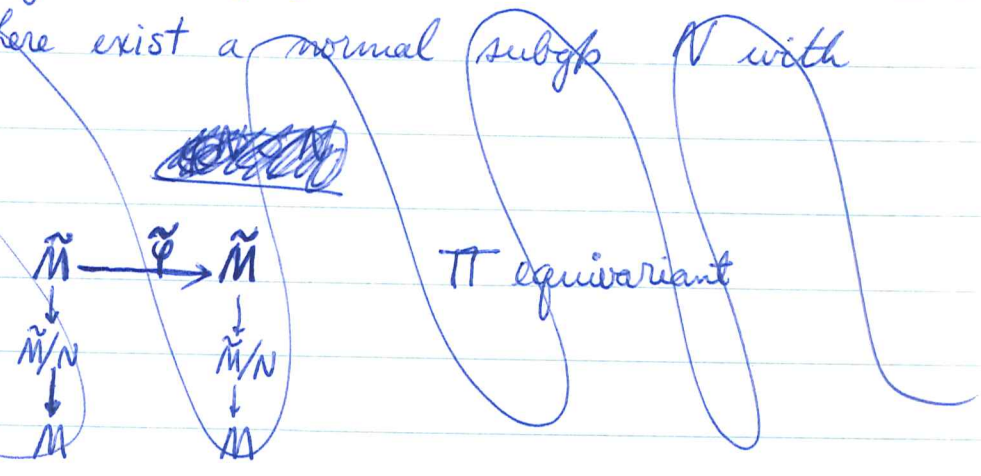 here exist a normal subgp N with
M̃ → φ̃ → M̃ π equivariant
↓ ↓
M̃/N M̃/N
↓ ↓
M M